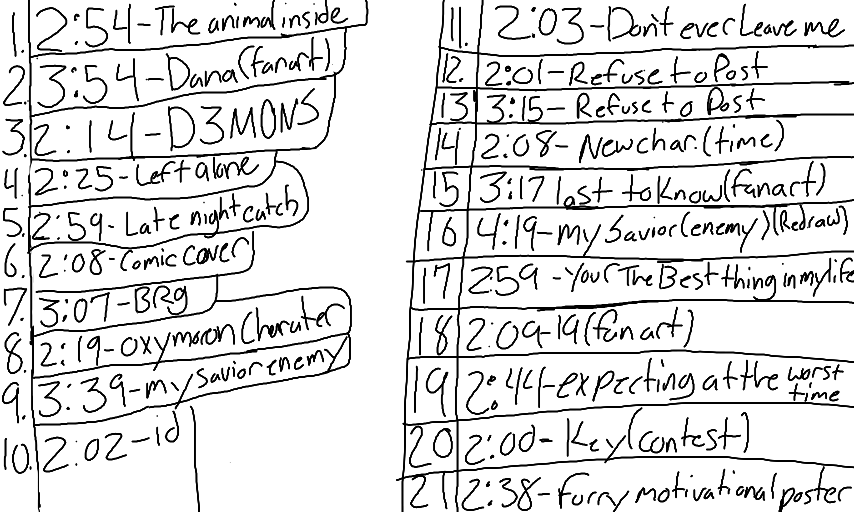 1. 2:54-The animal inside
2. 3:54-Dana(fanart)
3. 2:14-D3MONS
4. 2:25-Left alone
5. 2:59-Late night catch
6. 2:08-Comic cover
7. 3:07-BRg
8. 2:19-oxymoron Charater
9. 3:39-my savior enemy
10. 2:02-id
11. 2:03-Don't ever Leave me
12. 2:01-Refuse to Post
13 3:15-Refuse to Post
14 2:08-New char.(time)
15 3:17 last to Know(fanart)
16 4:19-my Savior(enemy)(Redraw)
17 2:59-Your The Best thing in my life
18 2:09-19(fan art)
19 2:44-expecting at the worst
time
20 2:00-Key(contest)
21 2:38-furry motivational poster